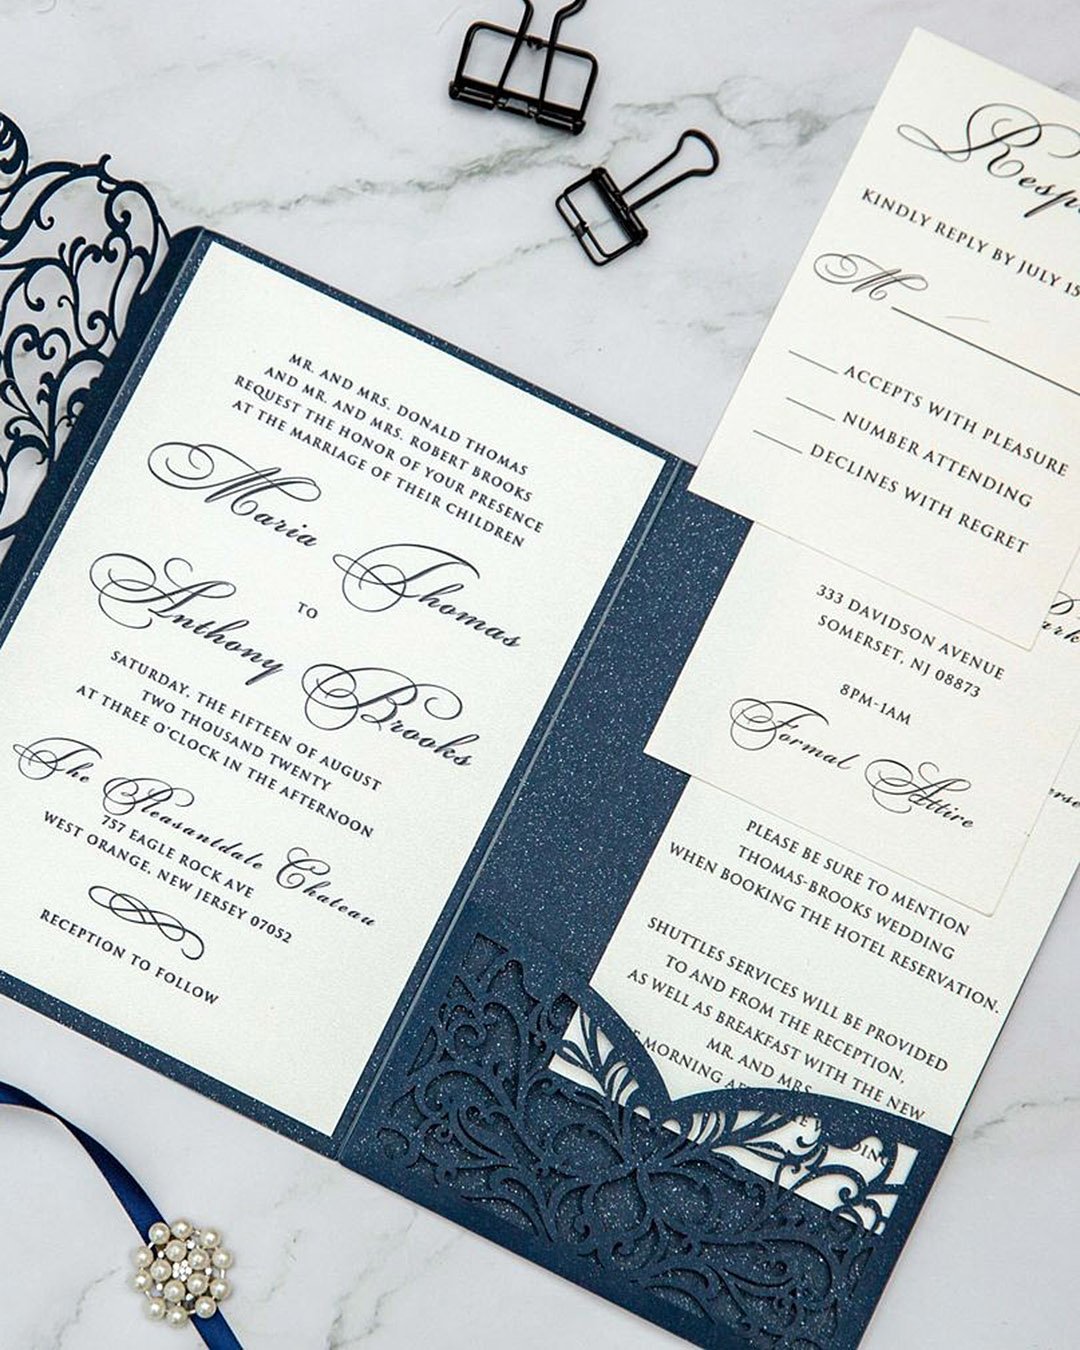 MR. AND MRS. DONALD THOMAS
AND MR. AND MRS. ROBERT BROOKS
REQUEST THE HONOR OF YOUR PRESENCE
AT THE MARRIAGE OF THEIR CHILDREN
Maria Thomas
TO
Anthony Brooks
SATURDAY, THE FIFTEEN OF AUGUST
TWO THOUSAND TWENTY
AT THREE O'CLOCK IN THE AFTERNOON
The Pleasantdale Chateau
757 EAGLE ROCK AVE
WEST ORANGE, NEW JERSEY 07052
RECEPTION TO FOLLOW
Resp
KINDLY REPLY BY JULY 15
M
ACCEPTS WITH PLEASURE
NUMBER ATTENDING
DECLINES WITH REGRET
333 DAVIDSON AVENUE
SOMERSET, NJ 08873
8PM-1AM
Formal Attire
PLEASE BE SURE TO MENTION
THOMAS-BROOKS WEDDING
WHEN BOOKING THE HOTEL RESERVATION.
SHUTTLES SERVICES WILL BE PROVIDED
TO AND FROM THE RECEPTION,
AS WELL AS BREAKFAST WITH THE NEW
MR. AND MRS.
MORNING